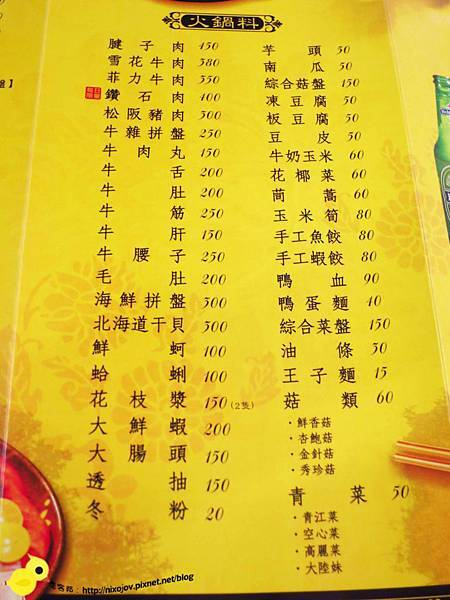 火鍋料
腱子肉 450
雪花牛肉 380
菲力牛肉 350
鑽石肉 400
松阪豬肉 300
牛雜拼盤 250
牛肉丸 150
牛舌 200
牛肚 200
牛筋 250
牛肝 150
牛腰子 250
毛肚 200
海鮮拼盤 500
北海道干貝 300
鮮蚵 100
蛤蜊 100
花枝漿 150(2隻)
大鮮蝦 200
大腸頭 150
透抽 150
冬粉 20
芋頭 50
南瓜 50
綜合菇盤 150
凍豆腐 50
板豆腐 50
豆皮 50
牛奶玉米 60
花椰菜 60
茼蒿 60
玉米筍 80
手工魚餃 80
手工蝦餃 80
鴨血 90
鴨蛋麵 40
綜合菜盤 150
油條 50
王子麵 15
菇類 60
・鮮香菇
・杏鮑菇
・金針菇
・秀珍菇
青菜 50
・青江菜
・空心菜
・高麗菜
・大陸妹
http://nixojov.pixnet.net/blog